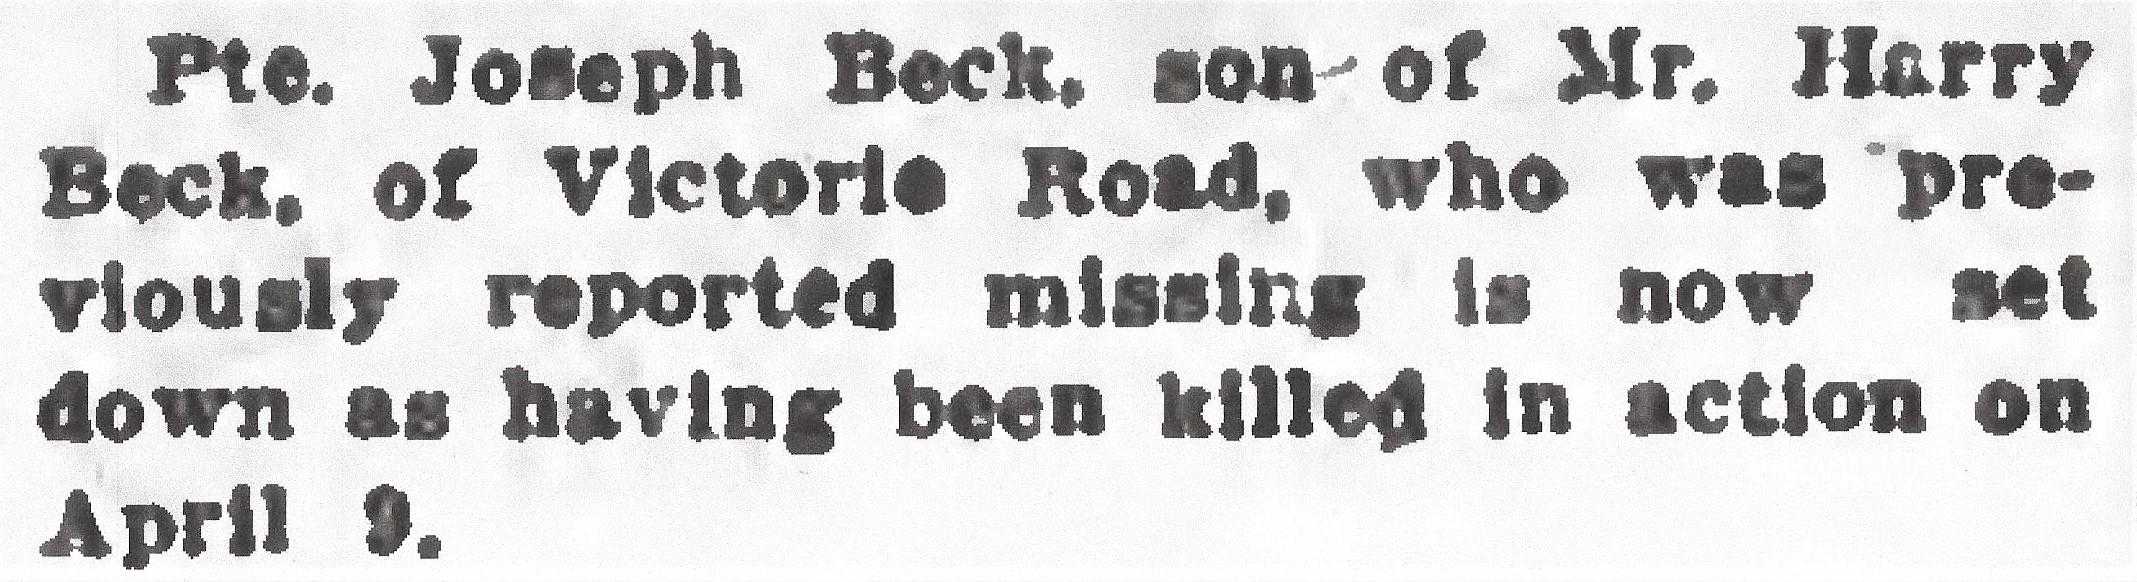 Pte. Joseph Beck, son of Mr. Harry
Beck, of Victoria Road, who was pre-
viously reported missing is now set
down as having been killed in action on
April 9.